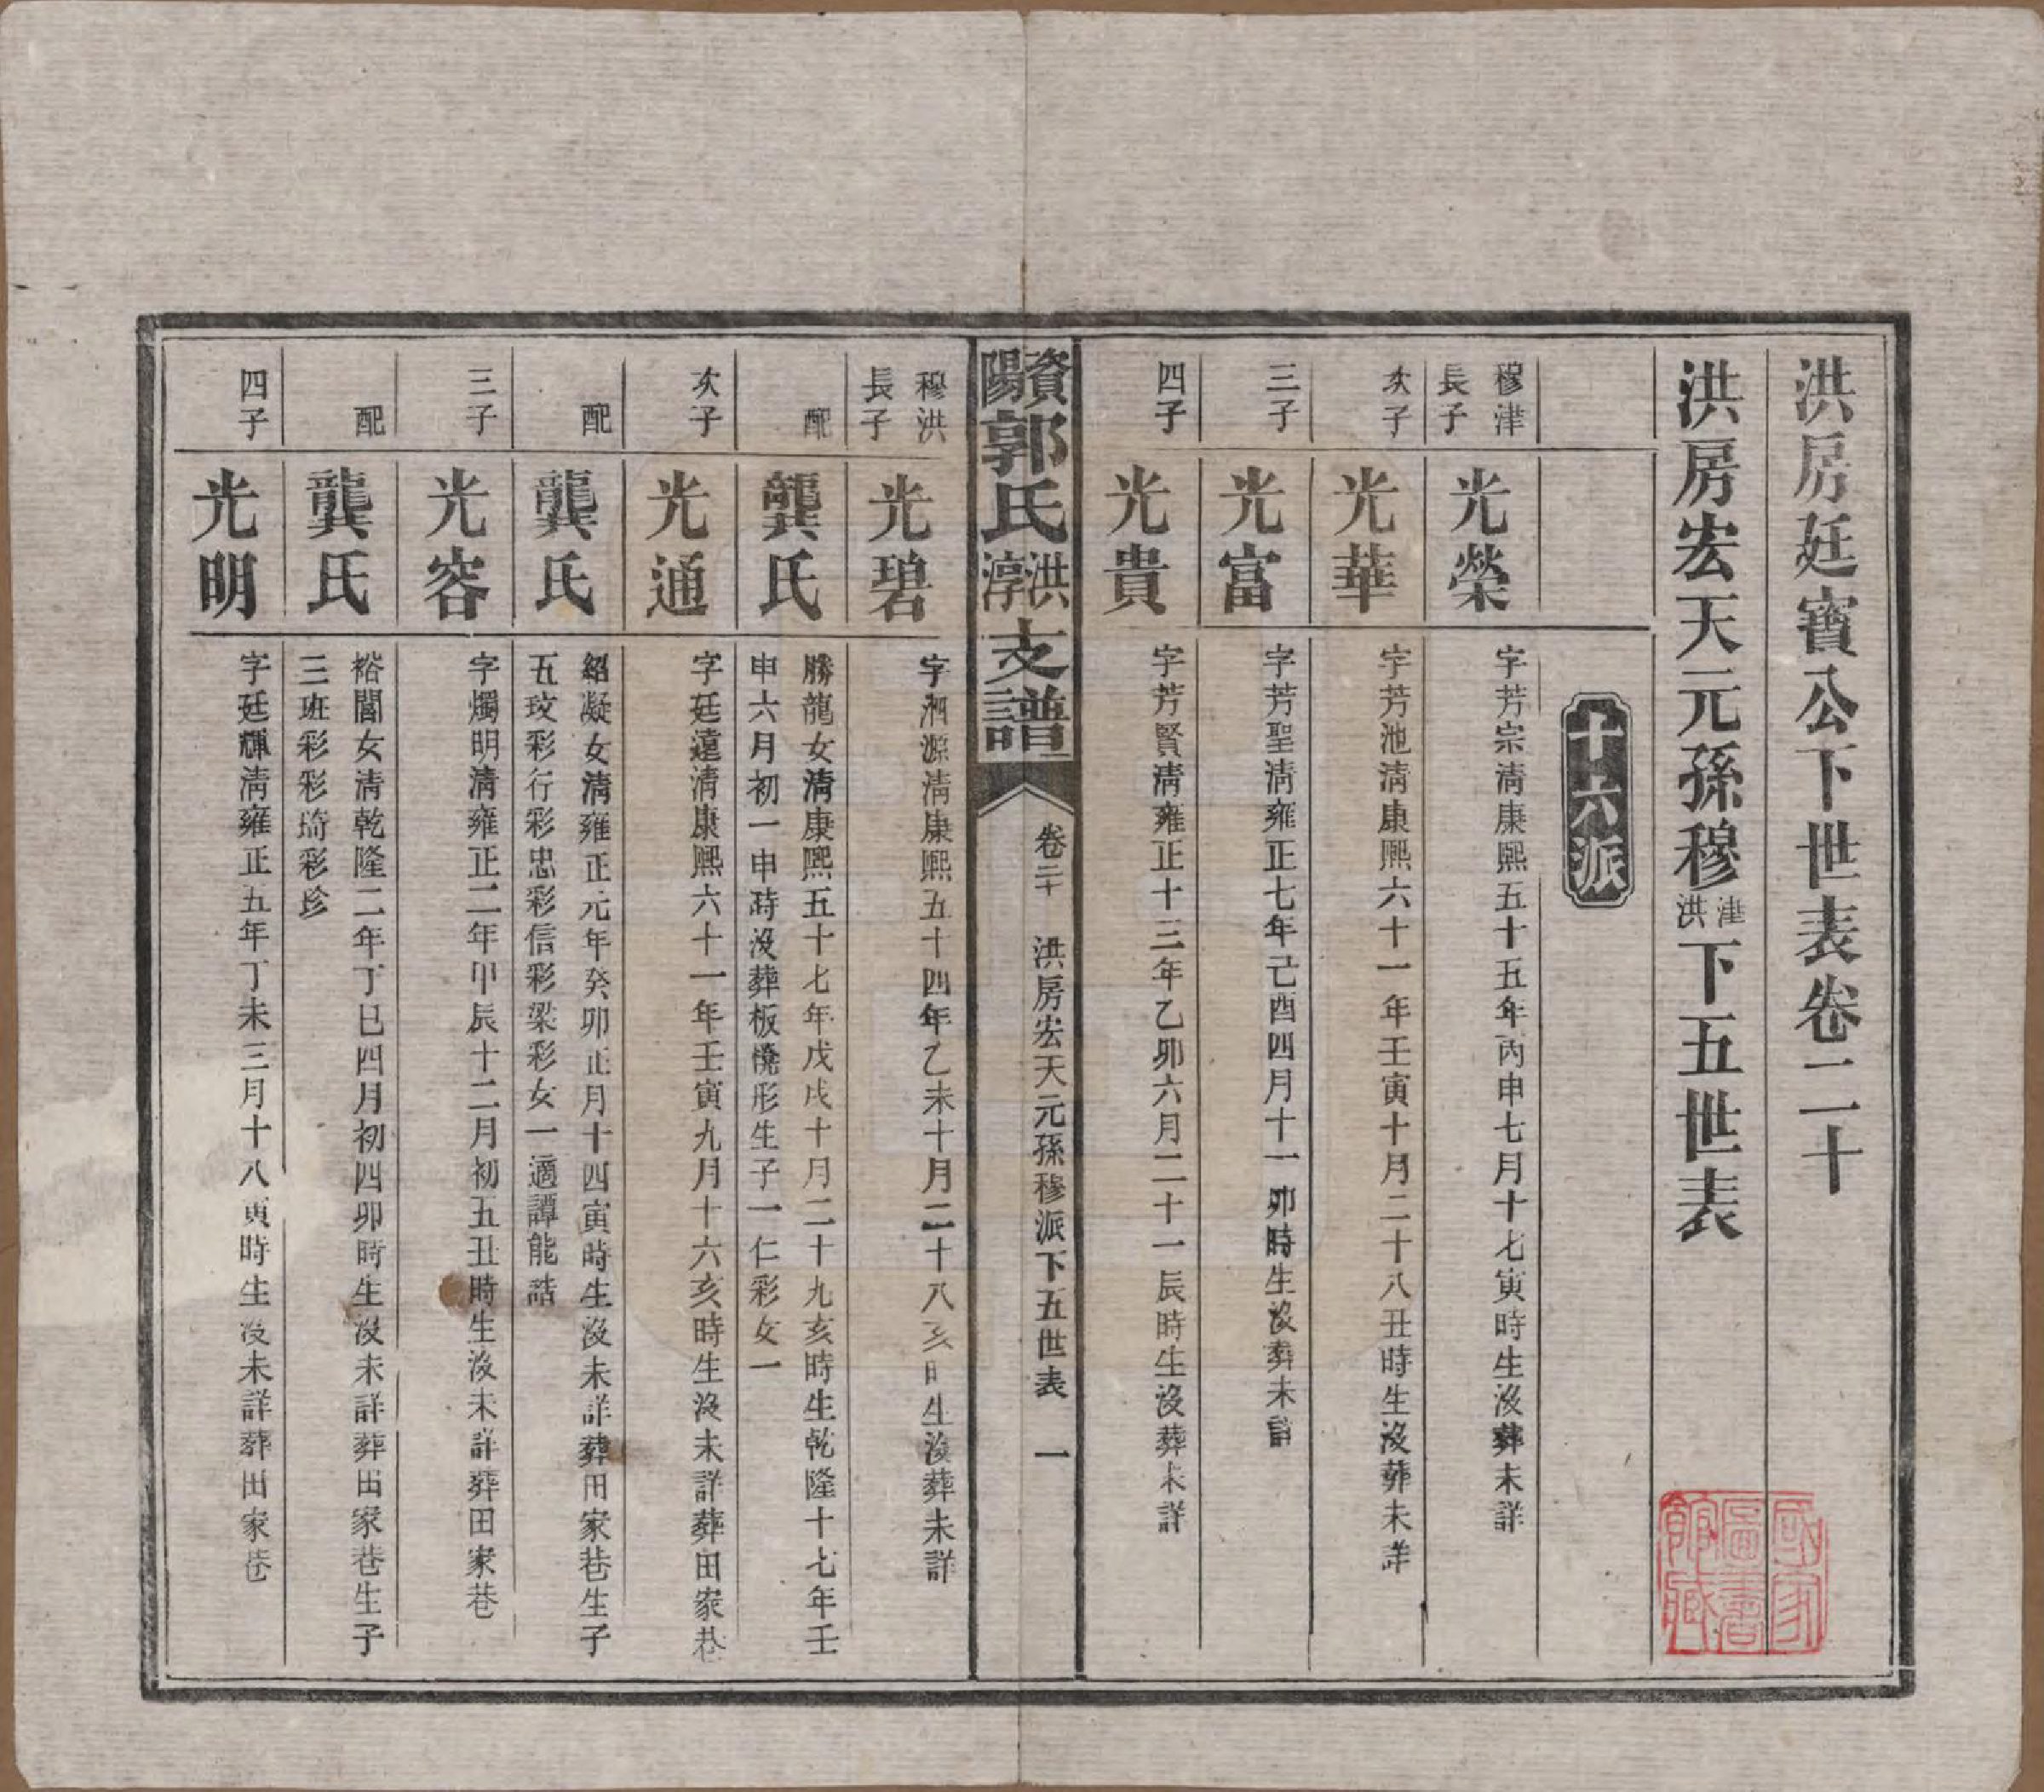 洪房廷寶公下世表卷二十
洪房宏天元孫穆津洪下五世表
十六派
穆津長子
光榮
字芳宗淸康熙五十五年丙申七月十七寅時生沒葬未詳
次子
光華
字芳池淸康熙六十一年壬寅十月二十八丑時生沒葬未詳
三子
光富
字芳聖淸雍正七年己酉四月十一卯時生沒葬未詳
四子
光貴
字芳賢淸雍正十三年乙卯六月二十一辰時生沒葬未詳
資陽郭氏洪淳支譜
卷二十
洪房宏天元孫穆派下五世表
一
穆洪長子
光碧
字泗源淸康熙五十四年乙未十月二十八亥時生沒葬未詳
配
龔氏
勝龍女淸康熙五十七年戊戌十月二十九亥時生乾隆十七年壬
申六月初一申時沒葬板櫈形生子一仁彩女一
次子
光通
字廷遠淸康熙六十一年壬寅九月十六亥時生沒未詳葬田家巷
配
龔氏
紹凝女淸雍正元年癸卯正月十四寅時生沒未詳葬田家巷生子
五玟彩行彩忠彩信彩梁彩女一適譚能誥
三子
光容
字燭明淸雍正二年甲辰十二月初五丑時生沒未詳葬田家巷
配
龔氏
裕閶女淸乾隆二年丁巳四月初四卯時生沒未詳葬田家巷生子
三班彩彩琦彩珍
四子
光明
字廷輝淸雍正五年丁未三月十八寅時生沒未詳葬田家巷
國家圖書館藏